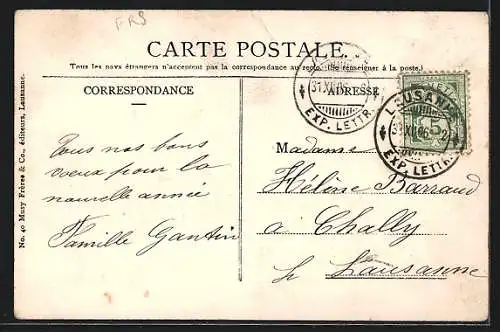 FRS
CARTE POSTALE.
Tous les pays étrangers n'acceptent pas la correspondance au recto. (Se renseigner à la poste.)
CORRESPONDANCE
ADRESSE
31 XII 06
EXP. LETTR.
LAUSANNE
31 XII 06
EXP. LETTR.
Tous nos bons
voeux pour la
nouvelle année
Famille Gantin
Madame
Héloïse Barraud
à Chally
s/ Lausanne
No. 40 Mury Frères & Co., éditeurs, Lausanne.